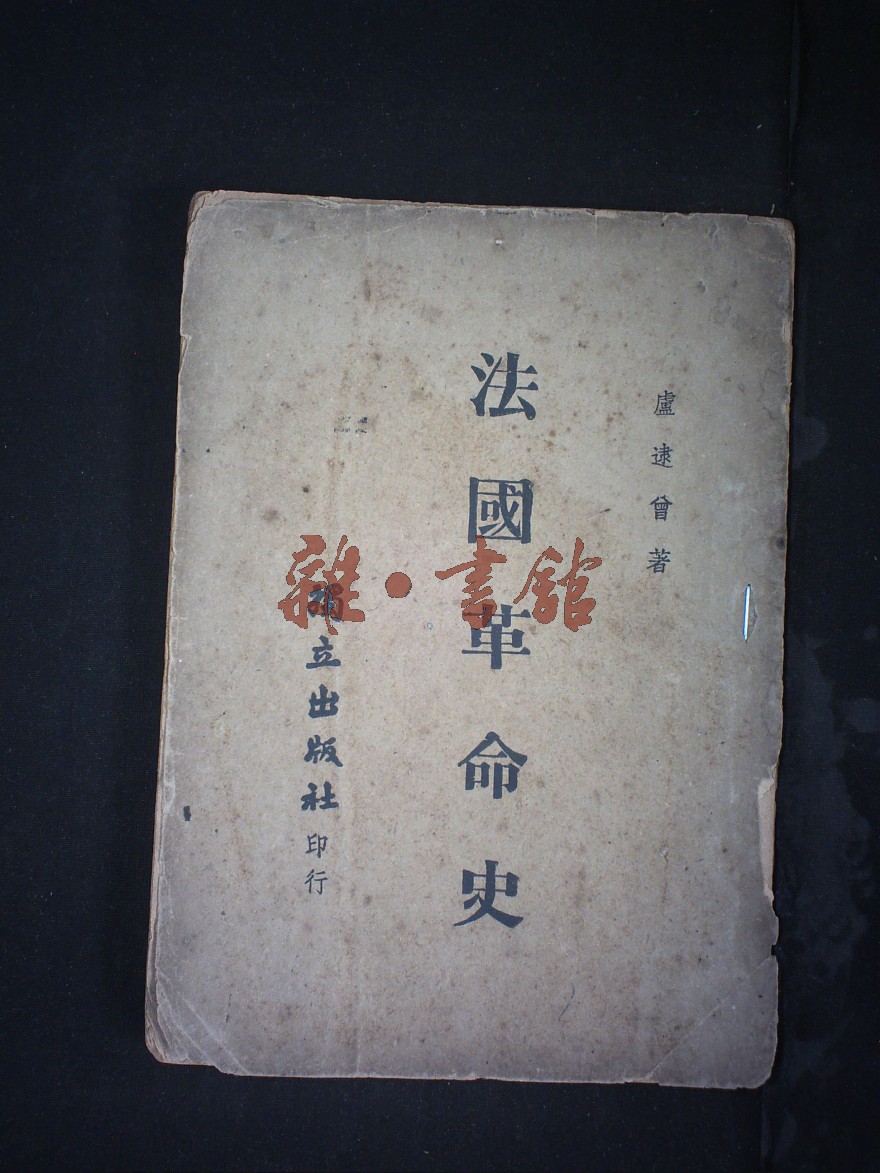 盧逮曾著
法國革命史
獨立出版社印行
雜·書館